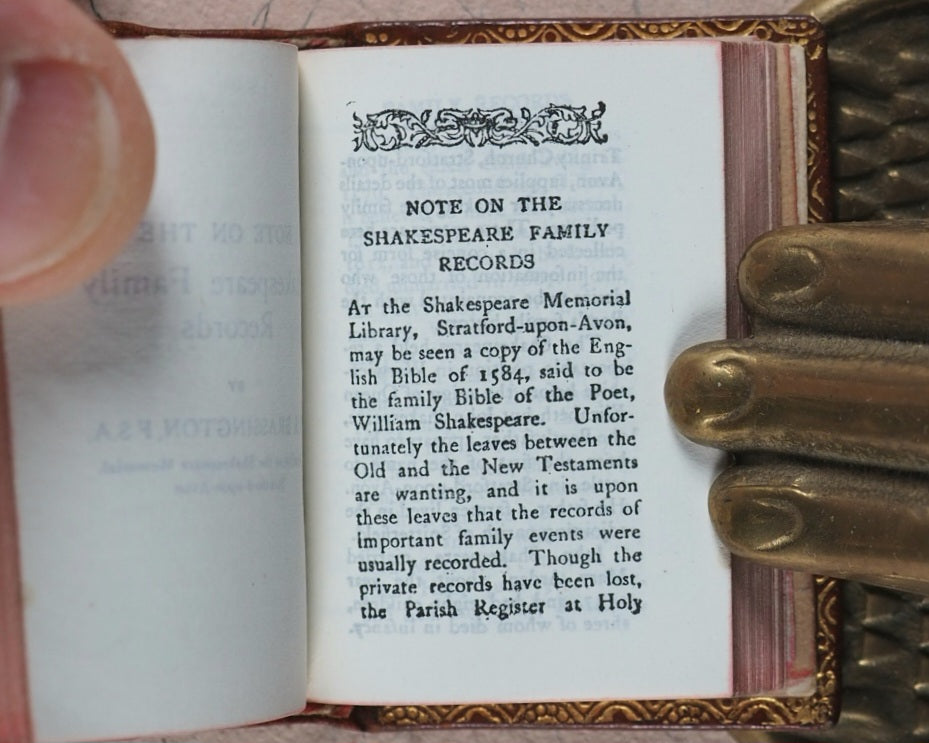 NOTE ON THE
SHAKESPEARE FAMILY
RECORDS
AT the Shakespeare Memorial
Library, Stratford-upon-Avon,
may be seen a copy of the Eng-
lish Bible of 1584, said to be
the family Bible of the Poet,
William Shakespeare. Unfor-
tunately the leaves between the
Old and the New Testaments
are wanting, and it is upon
these leaves that the records of
important family events were
usually recorded. Though the
private records have been lost,
the Parish Register at Holy